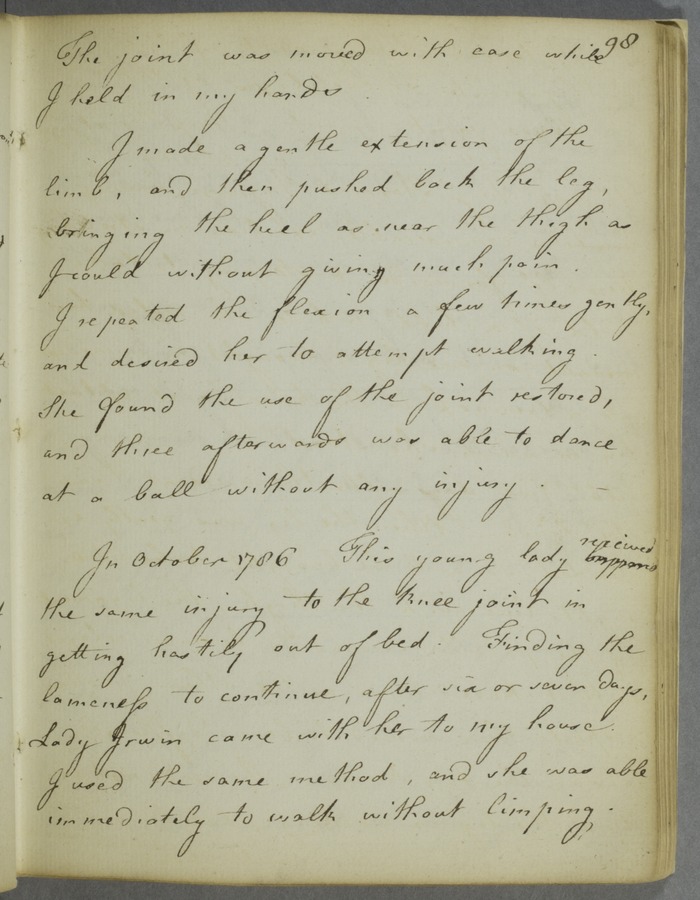 98
The joint was moved with ease while
I held in my hands.
I made a gentle extension of the
limb, and then pushed back the leg,
bringing the heel as near the thigh as
I could without giving much pain.
I repeated the flexion a few times gently,
and desired her to attempt walking.
She found the use of the joint restored,
and three afterwards was able to dance
at a ball without any injury. —
received
In October 1786 This young lady
the same injury to the knee joint in
getting hastily out of bed. Finding the
lameness to continue, after six or seven days,
Lady Irwin came with her to my house.
I used the same method, and she was able
immediately to walk without limping.